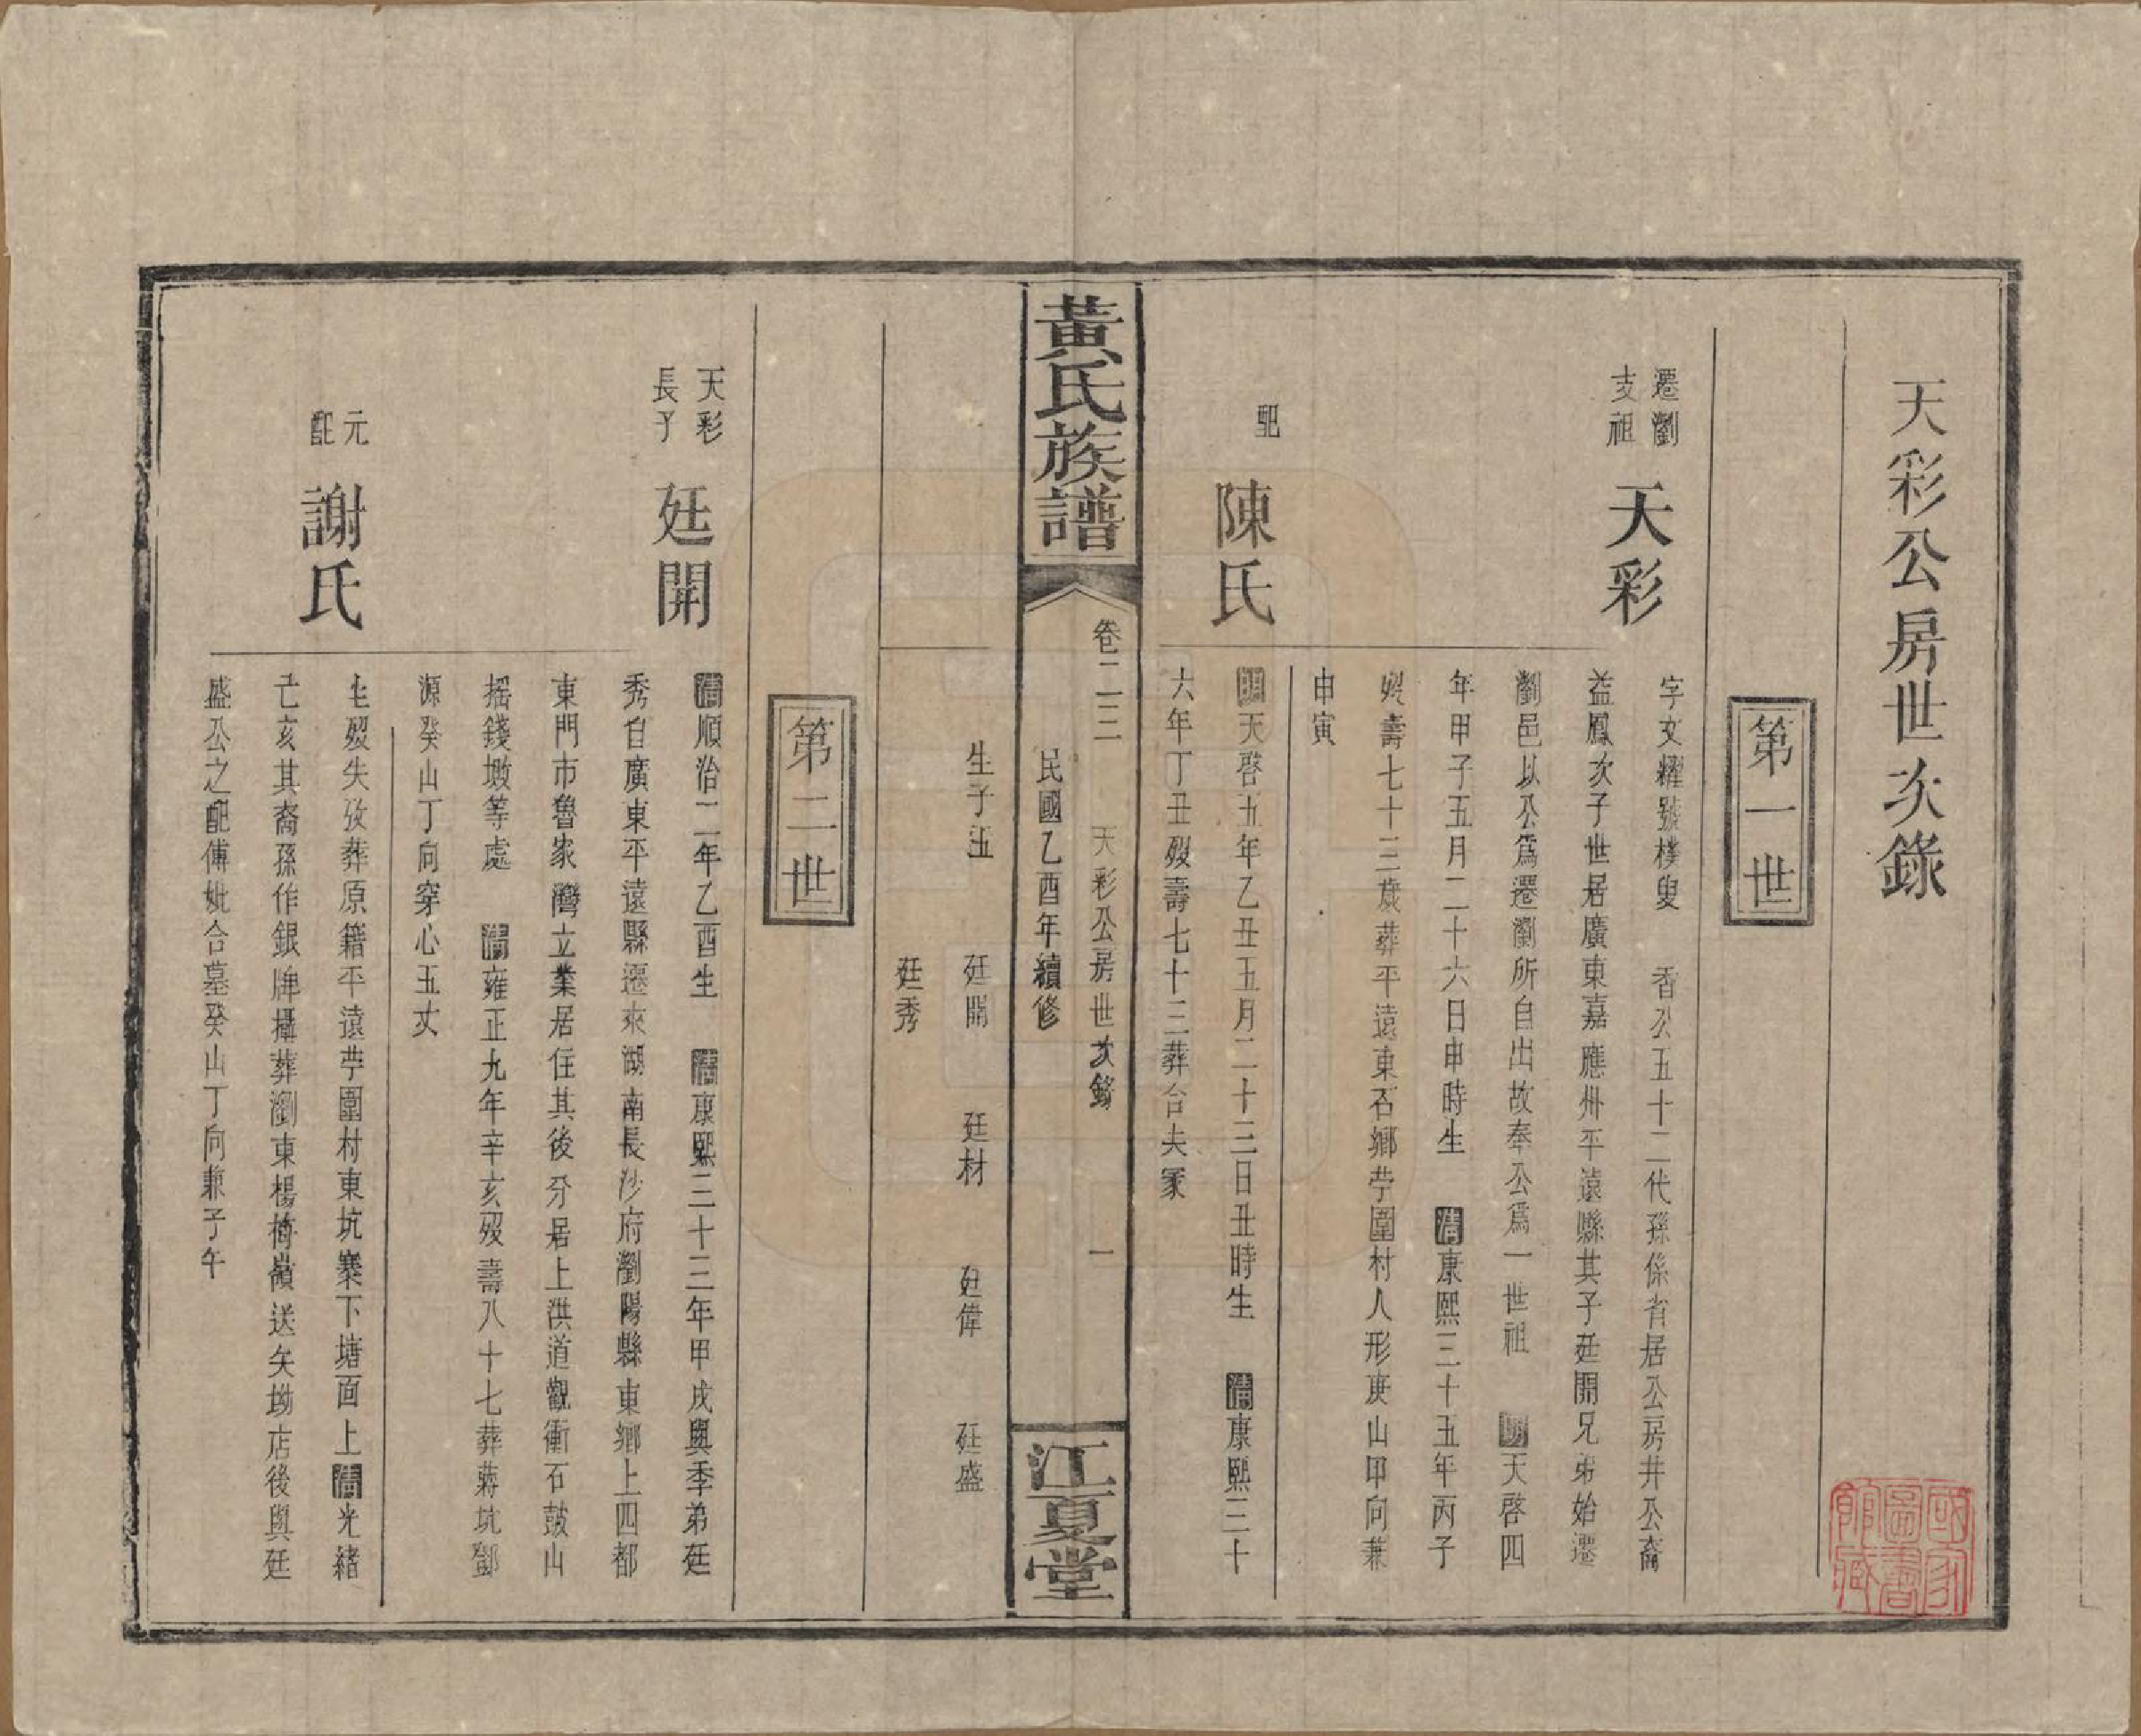 天彩公房世次錄
第一世
遷瀏
支祖
天彩
字文耀號樸叟　香公五十二代孫係省居公房井公裔
益鳳次子世居廣東嘉應州平遠縣其子廷開兄弟始遷
瀏邑以公爲遷瀏所自出故奉公爲一世祖　明天啓四
年甲子五月二十六日申時生　清康熙三十五年丙子
歿壽七十三歲葬平遠東石鄉苧圍村人形庚山甲向兼
申寅
配
陳氏
明天啓五年乙丑五月二十三日丑時生　清康熙三十
六年丁丑歿壽七十三葬合夫冢
黃氏族譜
卷二三　天彩公房世次錄　一
民國乙酉年續修
江夏堂
生子五　廷開　廷材　廷偉　廷盛
廷秀
第二世
天彩
長子
廷開
清順治二年乙酉生　清康熙三十三年甲戌與季弟廷
秀自廣東平遠縣遷來湖南長沙府瀏陽縣東鄉上四都
東門市魯家灣立業居住其後分居上洪道觀衝石鼓山
搖錢墩等處　清雍正九年辛亥歿壽八十七葬蔣坑鄧
源癸山丁向穿心五丈
元
配
謝氏
生歿失攷葬原籍平遠苧圍村東坑寨下塘面上清光緒
亡亥其裔孫作銀牌攝葬瀏東楊嶺送矢坳店後與廷
盛公之配傅妣合墓癸山丁向兼子午
國家圖書館藏